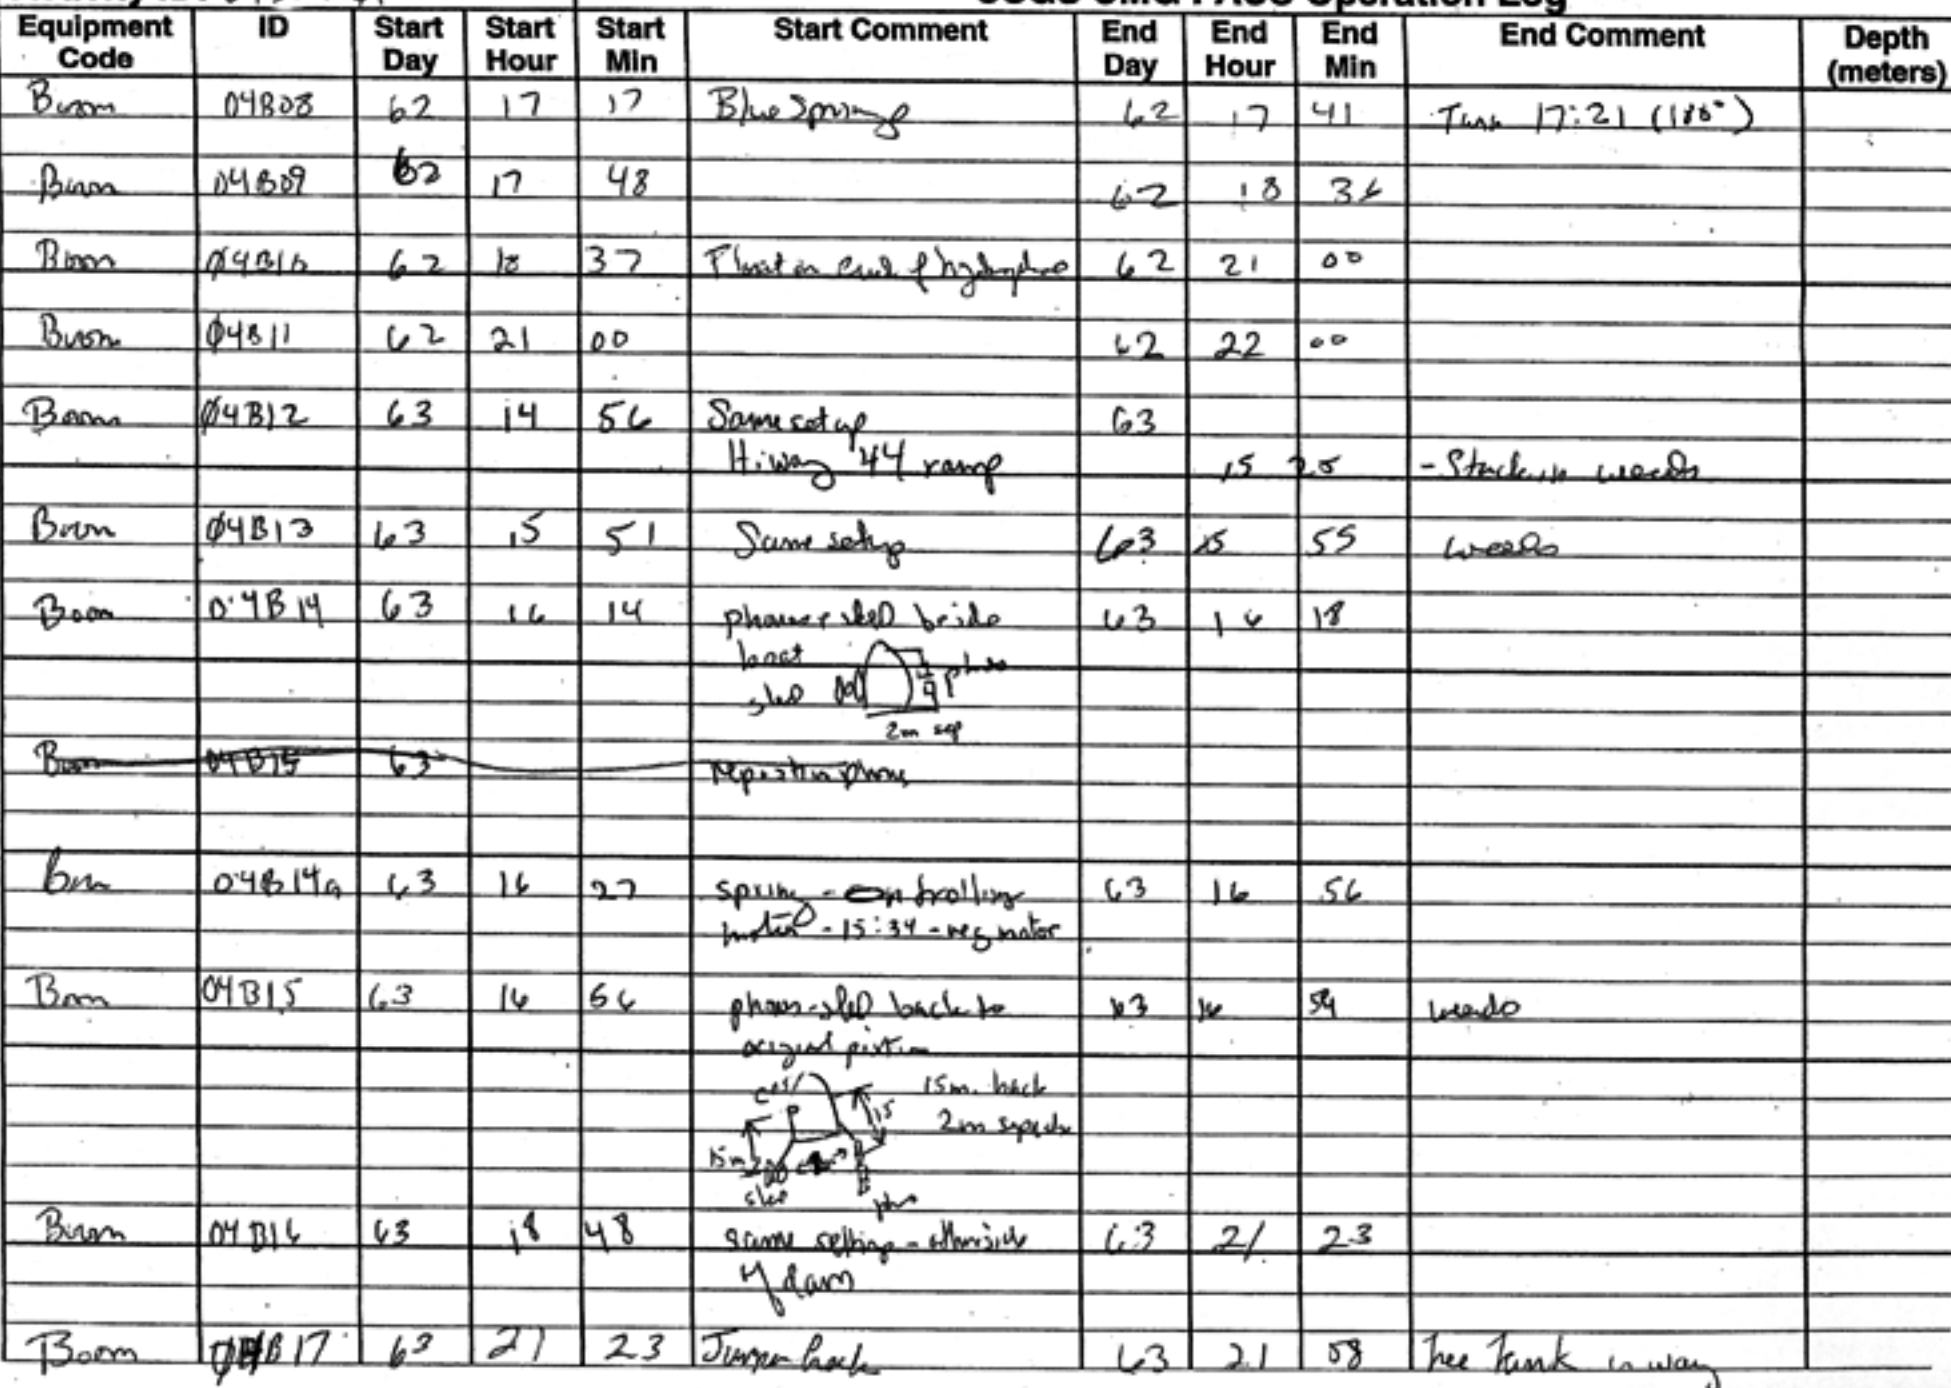 Equipment Code ID Start Day Start Hour Start Min Start Comment End Day End Hour End Min End Comment Depth (meters)
Boom 04B08 62 17 17 Blue Springs 62 17 41 Turn 17:21 (180°)
Boom 04B09 62 17 48 62 18 36
Boom 04B10 62 18 37 Float on end of hydrophone 62 21 00
Boom 04B11 62 21 00 62 22 00
Boom 04B12 63 14 56 Same setup 63
Hiway 44 ramp 15 - Stuck in weeds
Boom 04B13 63 15 51 Same setup 63 15 55 weeds
Boom 04B14 63 16 14 phone + sled beside 63 16 18
boat
sled phone
2m sep
Boom 04B15 63 reposition phone
Boom 04B14a 63 16 27 spring - on trolling 63 16 56
motor - 15:34 - reg motor
Boom 04B15 63 16 56 phone-sled back to 63 16 59 weeds
original position
15m. back
15
2m
15m
sled
Boom 04B16 63 18 48 same setting - otherside 63 21 23
of dam
Boom 04B17 63 21 23 63 21 58 Tree Trunk in way